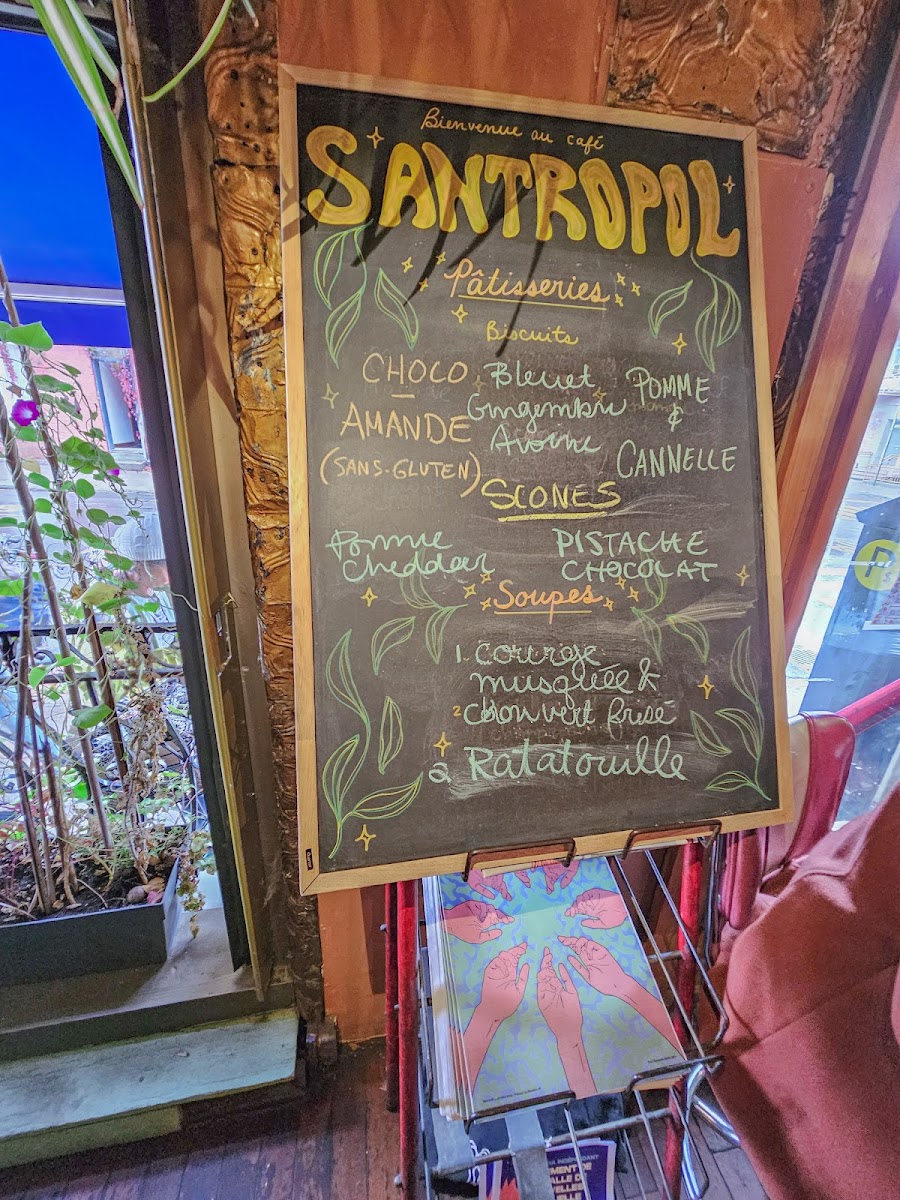 Bienvenue au café
SANTROPOL
Pâtisseries
Biscuits
CHOCO
AMANDE
(SANS-GLUTEN)
Bleuet
Gingembre
Avoine
POMME
&
CANNELLE
SCONES
Pomme
Cheddar
PISTACHE
CHOCOLAT
Soupes
1. courge
musquée &
chou vert frisé
2 Ratatouille
P